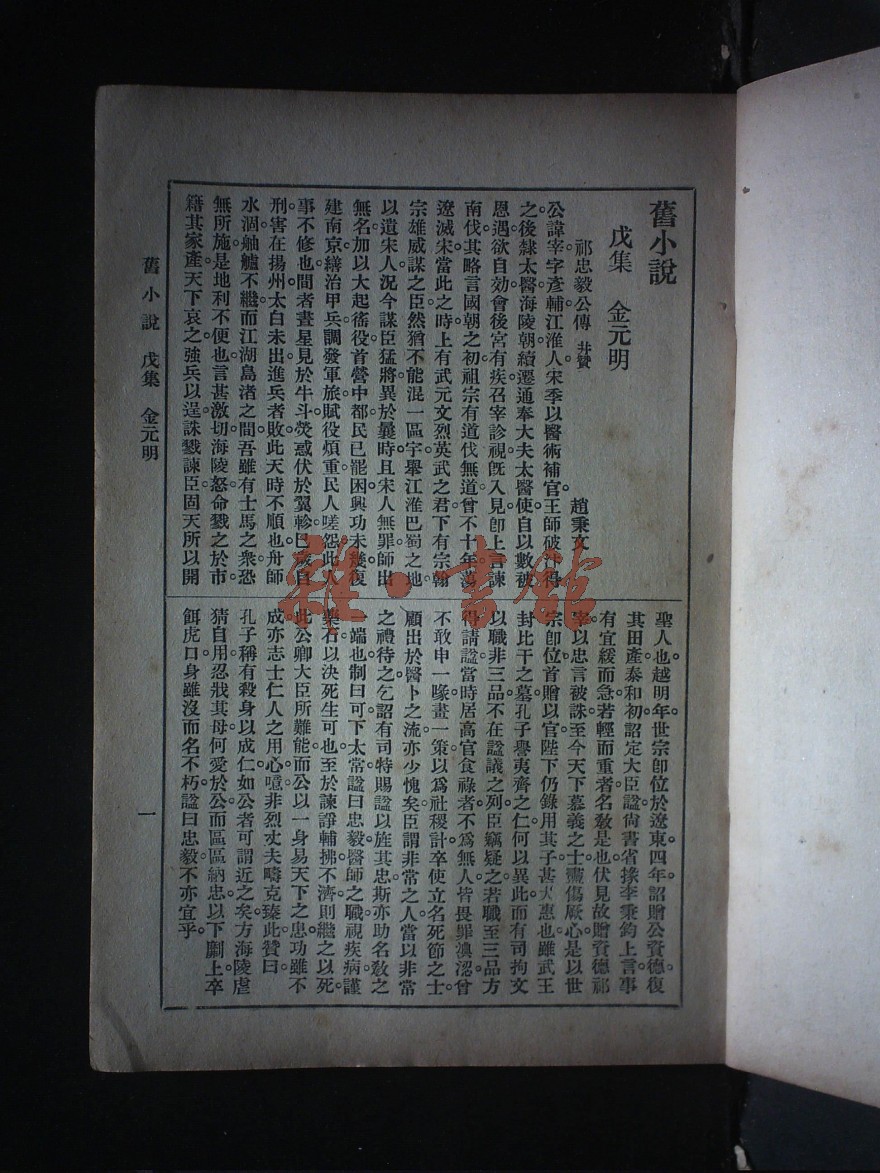 舊小說
戊集　金元明
祁忠毅公傳 幷贊　趙秉文
公諱宰字彥輔江淮人宋季以醫術補官王師破汴得
之後隸太醫海陵朝績遷通奉大夫太醫使自以數被
恩遇欲自効會後宮有疾召宰診視既入見卽上言諫
南伐其略言國朝之初祖宗有道伐無道曾不十年蕩
遼滅宋當此之時上有武元文烈英武之君下有宗翰
宗雄威謀之臣然猶不能混一區宇舉江淮巴蜀之地
以遺宋人況今謀臣猛將異於曩時且宋人無罪師出
無名加以大起徭役首營中都民已罷困興功未幾復
建南京繕治甲兵調發軍旅賦役煩重民人嗟怨此人
事不修也間者晝星見於牛斗熒惑伏於翼軫巳歲自
刑害在揚州太白未出進兵者敗此天時不順也舟師
水涸舳艫不繼而江湖島渚之間吾雖有士馬之衆恐
無所施是地利不便也言甚激切海陵怒命戮之於市
籍其家產天下哀之強兵以逞誅戮諫臣固天所以開
聖人也越明年世宗卽位於遼東四年詔贈公資德復
其田產泰和初詔定大臣諡尙書省掾李秉鈞上言事
有宜緩而急若輕而重者名敎是也伏見故贈資德祁
宰以忠言被誅至今天下慕義之士盡傷厥心是以世
宗卽位首贈以官陛下仍錄用其子甚大惠也雖武王
封比干之墓孔子譽夷齊之仁何以異此而有司拘文
以職非三品不在諡議之列臣竊疑之若職至三品方
得請諡當時居高官食祿者不爲無人皆畏罪淟涊曾
不敢申一喙畫一策以爲社稷計卒使立名死節之士
顧出於醫卜之流亦少愧矣臣謂非常之人當以非常
之禮待之乞詔有司特賜諡以旌其忠斯亦助名敎之
一端也制曰可下太常諡曰忠毅醫師之職視疾病謹
藥石以決死生可也至於諫諍輔拂不濟則繼之以死
此公卿大臣所難能而公以一身易天下之患功雖不
成亦志士仁人之用心噫非烈丈夫疇克臻此贊曰
孔子稱有殺身以成仁如公者可謂近之矣方海陵虐
猜自用忍戕其母何愛於公而區區納忠以下劘上卒
餌虎口身雖沒而名不朽諡曰忠毅不亦宜乎
舊小說　戊集　金元明
一
雜·書館